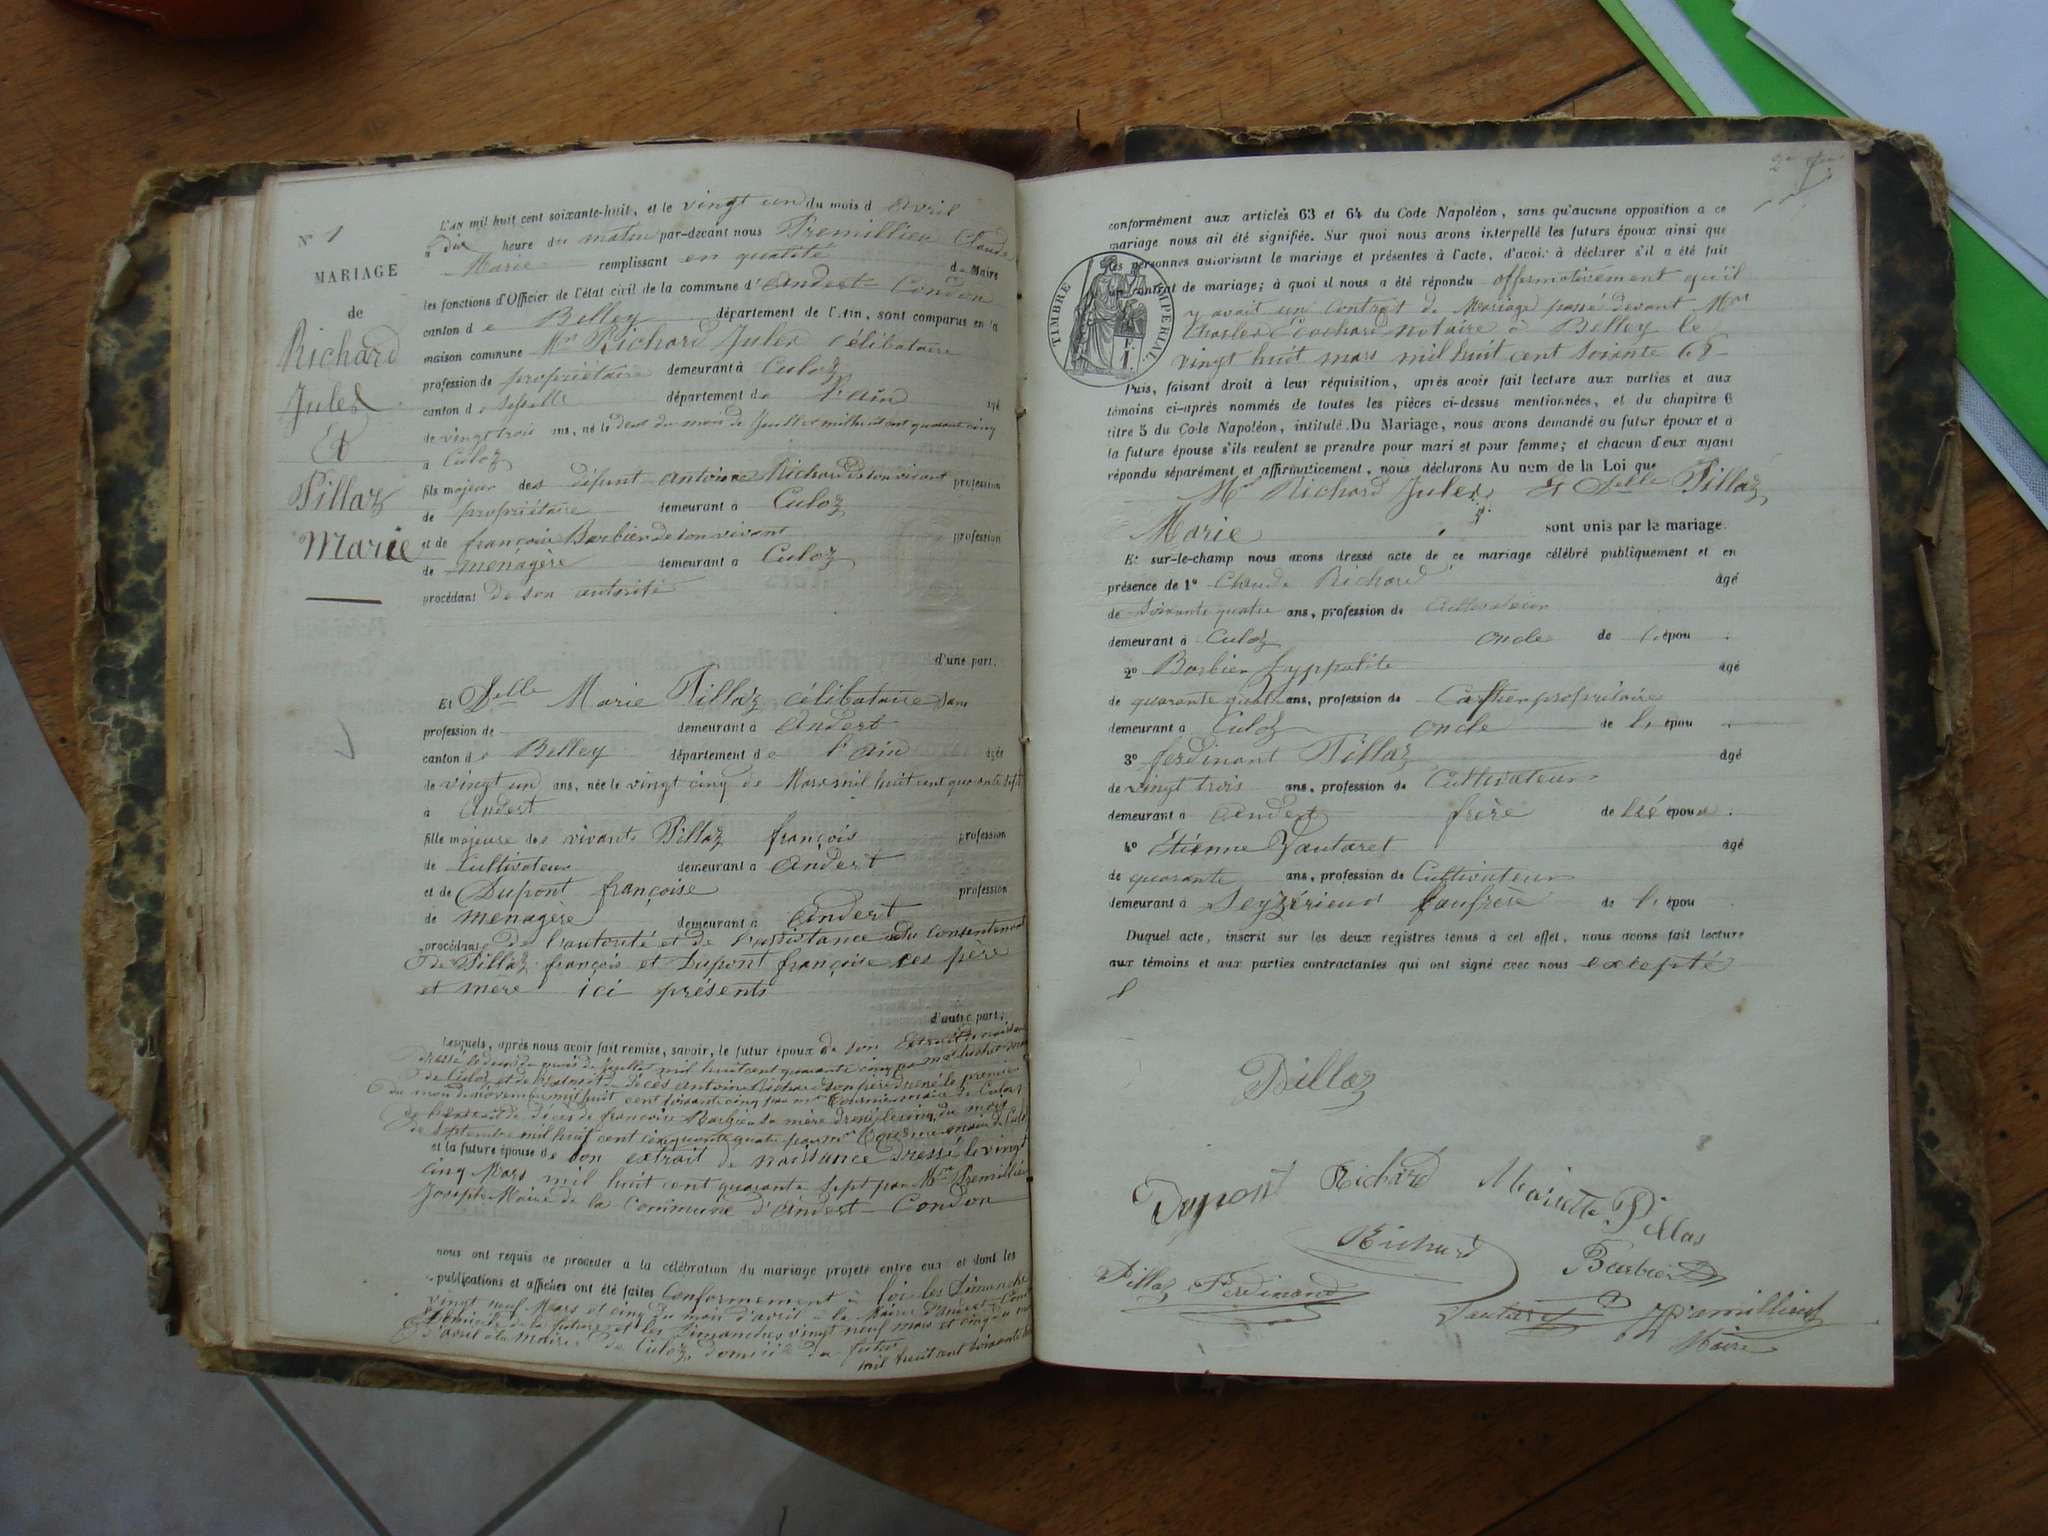 N° 1
MARIAGE
de
Richard
Jules
Et
Pillaz
Marie
L'an mil huit cent soixante-huit, et le vingt un du mois d'avril
à dix heure du matin par-devant nous Premillieu Claude
Marie remplissant en qualité de Maire
les fonctions d'Officier de l'état civil de la commune d'Andert-Condon
canton de Belley département de l'Ain, sont comparus en la
maison commune Mr Richard Jules célibataire
profession de propriétaire demeurant à Culoz
canton de département de l'ain âgé
de vingt trois ans, né le deux du mois de Juillet mil huit cent quarante cinq
à Culoz
fils majeur des défunt Antoine Richard de son vivant profession
de propriétaire demeurant à Culoz
et de françoise Barbier de son vivant profession
de menagère demeurant à Culoz
procédant de son autorité
d'une part.
Et Delle Marie Pillaz célibataire sans
profession de demeurant à Andert
canton de Belley département de l'ain âgée
de vingt un ans, née le vingt cinq de Mars mil huit cent quarante sept
à Andert
fille majeure des vivants Pillaz françois profession
de Cultivateur demeurant à Andert
et de Dupont françoise profession
de menagère demeurant à Andert
procédant de l'autorité et de l'assistance et du consentement
de Pillaz françois et Dupont françoise ses père
et mere ici présents
d'autre part;
Lesquels, après nous avoir fait remise, savoir, le futur époux de son extrait de naissance
dressé le deux du mois de Juillet mil huit cent quarante cinq par
de Culoz et de l'extrait de décès Antoine Richard son père dressé le premier
du mois de novembre mil huit cent soixante cinq par mr maire de Culoz
de l'extrait de décès de francoise Barbier sa mère dressé le cinq du mois
de septembre mil huit cent cinquante quatre par mr maire de Culoz
et la future épouse de son extrait de naissance dressé le vingt
cinq Mars mil huit cent quarante sept par Mr Premillieu
Joseph Maire de la Commune d'Andert-Condon
nous ont requis de procéder à la célébration du mariage projeté entre eux et dont les
publications et affiches ont été faites Conformement à loi les Dimanche
vingt neuf Mars et cinq du mois d'avril à la Mairie d'Andert-Cond
domicile de la future et les Dimanches vingt neuf mars et cinq du mois
d'avril à la mairie de Culoz domicile du futur
mil huit cent soixante huit
TIMBRE IMPERIAL
conformément aux articles 63 et 64 du Code Napoléon, sans qu'aucune opposition à ce
mariage nous ait été signifiée. Sur quoi nous avons interpellé les futurs époux ainsi que
les personnes autorisant le mariage et présentes à l'acte, d'avoir à déclarer s'il a été fait
un contrat de mariage; à quoi il nous a été répondu affirmativement qu'il
y avait un contrat de Mariage passé devant Mre
Charles Cochard notaire à Belley le
vingt huit mars mil huit cent soixante 68
Puis, faisant droit à leur réquisition, après avoir fait lecture aux parties et aux
témoins ci-après nommés de toutes les pièces ci-dessus mentionnées, et du chapitre 6
titre 5 du Code Napoléon, intitulé Du Mariage, nous avons demandé au futur époux et à
la future épouse s'ils veulent se prendre pour mari et pour femme; et chacun d'eux ayant
répondu séparément et affirmativement, nous déclarons Au nom de la Loi que
Mr Richard Jules Et Delle Pillaz
Marie sont unis par le mariage.
Et sur-le-champ nous avons dressé acte de ce mariage célébré publiquement et en
présence de 1° Claude Richard âgé
de soixante quatre ans, profession de Cultivateur
demeurant à Culoz oncle de l'épou
2° Barbier hyppolite âgé
de quarante quatre ans, profession de propriétaire
demeurant à Culoz oncle de l'épou
3° ferdinant Pillaz âgé
de vingt trois ans, profession de Cultivateur
demeurant à Andert frère de l'épouse
4° Etienne Vautaret âgé
de quarante ans, profession de Cultivateur
demeurant à Seyzérieux de l'épou
Duquel acte, inscrit sur les deux registres tenus à cet effet, nous avons fait lecture
aux témoins et aux parties contractantes qui ont signé avec nous excepté
Pillaz
Dupont Richard Mariette Pillas
Richard Barbier
Pillaz Ferdinand Vautaret Premillieu
Maire